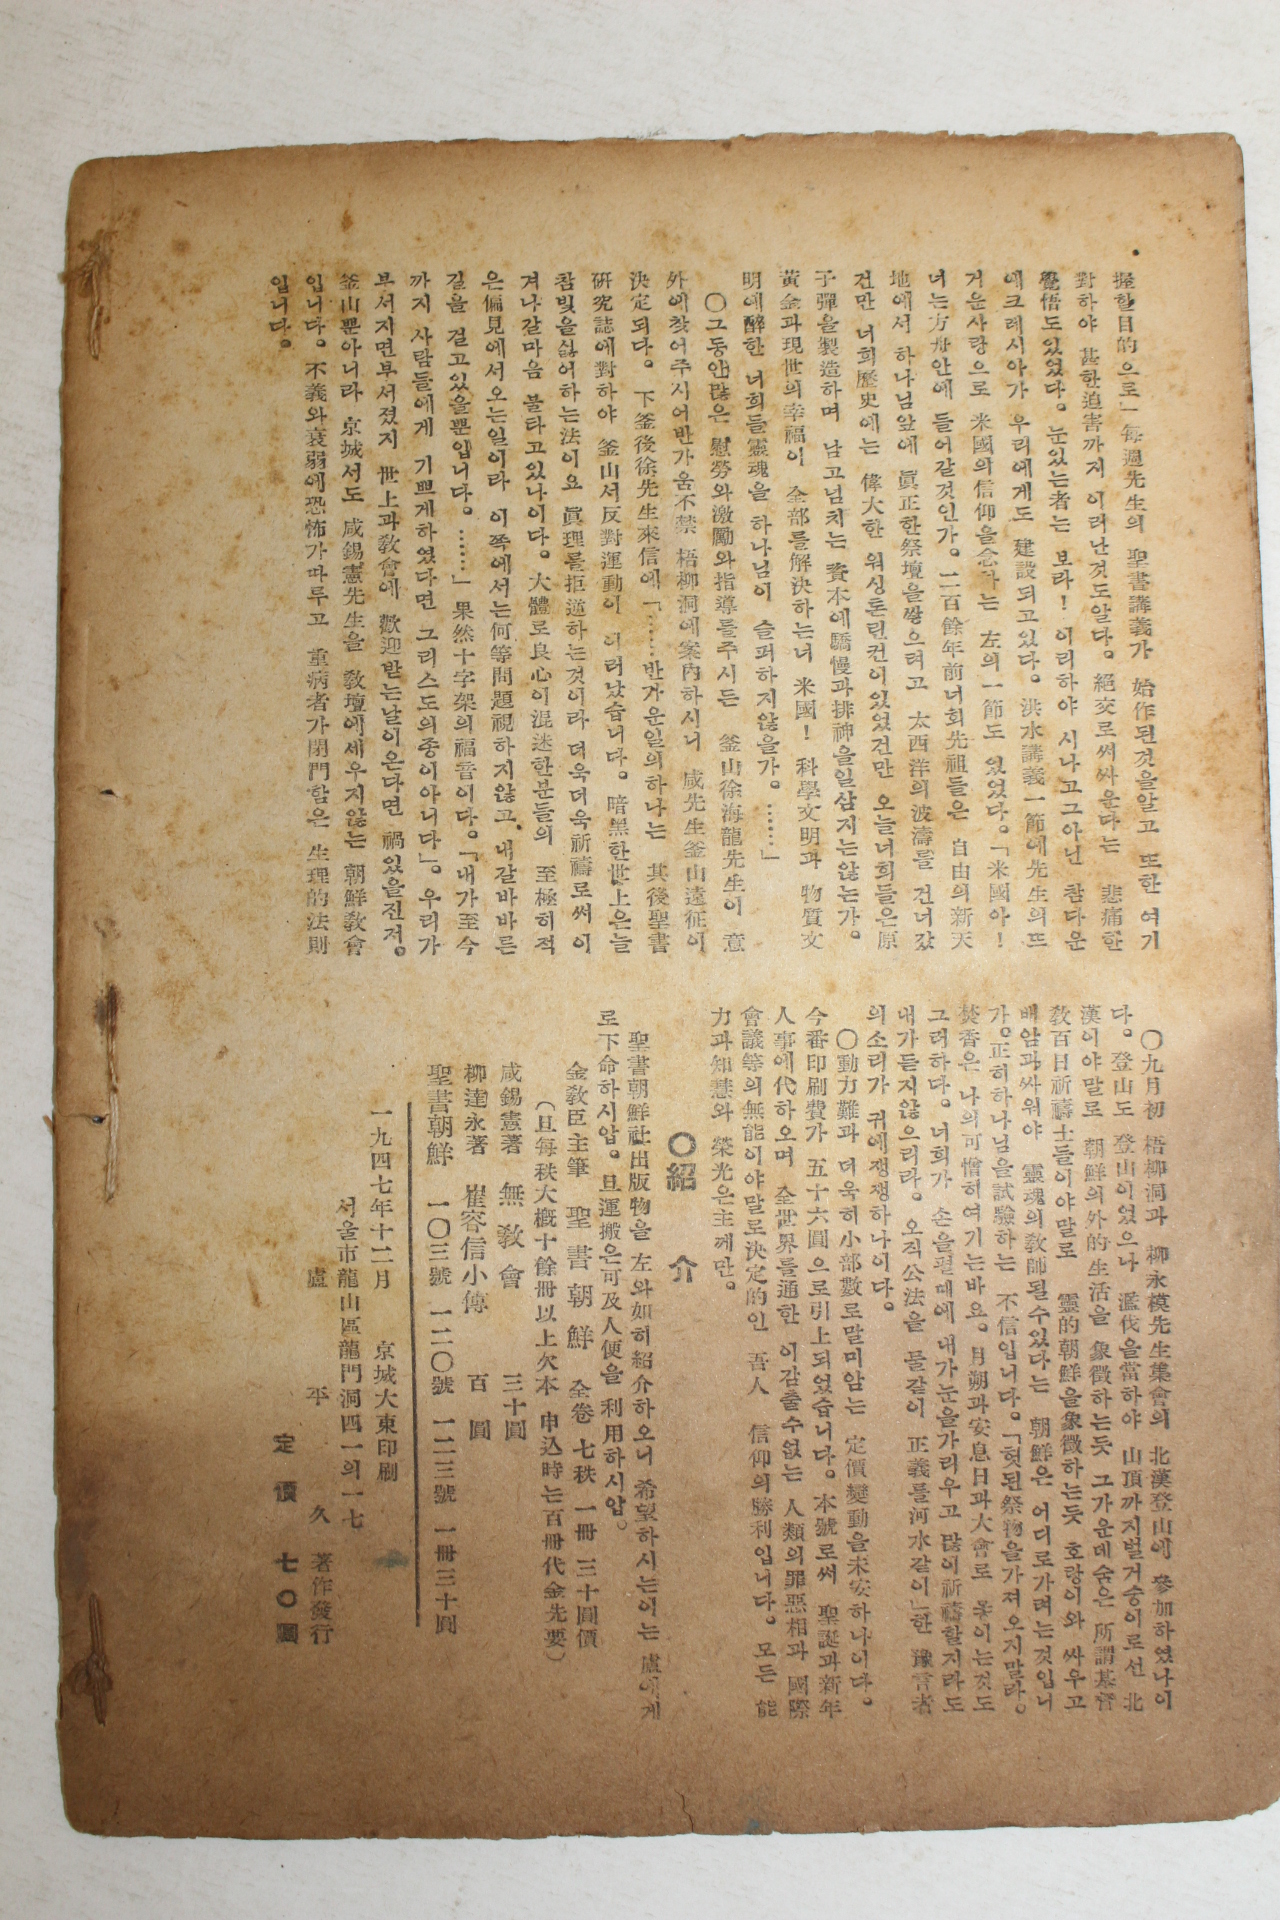 握할目的으로」每週先生의 聖書講義가 始作된것을알고 또한 여기
對하야 甚한迫害까지 이러난것도알다。絕交로써싸운다는 悲痛한
覺悟도있었다。눈있는者는 보라! 이리하야 시나고그아닌 참다운
에크레시아가 우리에게도 建設되고있다。洪水講義一節에先生의뜨
거운사랑으로 米國의信仰을念하는 左의一節도 있었다。「米國아!
너는方舟안에 들어갈것인가。二百餘年前너희先祖들은 自由의新天
地에서 하나님앞에 眞正한祭壇을쌓으려고 太西洋의波濤를 건너갔
건만 너희歷史에는 偉大한 워싱톤린컨이있었건만 오늘너희들은原
子彈을製造하며 남고넘치는 資本에驕慢과排神을일삼지는않는가。
黃金과現世의幸福이 全部를解決하는너 米國! 科學文明과 物質文
明에醉한 너희들靈魂을 하나님이 슬퍼하지않을가。……」
〇그동안많은 慰勞와激勵와指導를주시든 釜山徐海龍先生이 意
外에찾어주시어반가움不禁 梧柳洞에案內하시니 咸先生釜山遠征이
決定되다。下釜後徐先生來信에「……반가운일의하나는 其後聖書
硏究誌에對하야 釜山서反對運動이 이러났습니다。暗黑한世上은늘
참빛을싫어하는法이요 眞理를拒逆하는것이라 더욱더욱祈禱로써 이
겨나갈마음 불타고있나이다。大體로良心이混迷한분들의 至極히적
은偏見에서오는일이라 이쪽에서는何等問題視하지않고、내갈바바른
길을 걸고있을뿐입니다。……」果然十字架의福音이다。「내가至今
까지 사람들에게 기쁘게하였다면 그리스도의종이아니다」。우리가
부서지면부서졌지 世上과敎會에 歡迎받는날이온다면 禍있을진저。
釜山뿐아니라 京城서도 咸錫憲先生을 敎壇에세우지않는 朝鮮敎會
입니다。不義와衰弱에恐怖가따루고 重病者가閉門함은 生理的法則
입니다。
〇九月初 梧柳洞과 柳永模先生集會의 北漢登山에 參加하였나이
다。登山도 登山이었으나 濫伐을當하야 山頂까지벌거숭이로선 北
漢이야말로 朝鮮의外的生活을 象徵하는듯 그가운데숨은 所謂基督
敎百日祈禱士들이야말로 靈的朝鮮을象徵하는듯 호랑이와 싸우고
배암과싸워야 靈魂의敎師될수있다는 朝鮮은 어디로가려는것입니
가。正히하나님을試驗하는 不信입니다。「헛된祭物을가져오지말라。
焚香은 나의可憎히여기는바요。月朔과安息日과大會로 못이는것도
그러하다。너희가 손을펼때에 내가눈을가리우고 많이祈禱할지라도
내가듣지않으리라。오직公法을 물같이 正義를河水같이」한 豫言者
의소리가 귀에쟁쟁하나이다。
〇動力難과 더욱히小部數로말미암는 定價變動을未安하나이다。
今番印刷費가 五十六圓으로引上되었습니다。本號로써 聖誕과新年
人事에代하오며 全世界를通한 이감출수없는 人類의罪惡相과 國際
會議等의無能이야말로決定的인 吾人 信仰의勝利입니다。모든 能
力과知慧와 榮光은主께만。
〇紹 介
聖書朝鮮社出版物을 左와如히紹介하오니 希望하시는이는 盧에게
로下命하시압。且運搬은可及人便을 利用하시압。
金敎臣主筆 聖書朝鮮 全卷 七秩 一冊 三十圓價
(且每秩大槪十餘冊以上欠本 申込時는百冊代金先要)
咸錫憲著 無敎會 三十圓
柳達永著 崔容信小傳 百圓
聖書朝鮮 一〇三號 一二〇號 一二三號 一冊三十圓
一九四七年十二月 京城大東印刷
서울市龍山區龍門洞四一의一七
盧 平 久 著作發行
定價 七〇圓